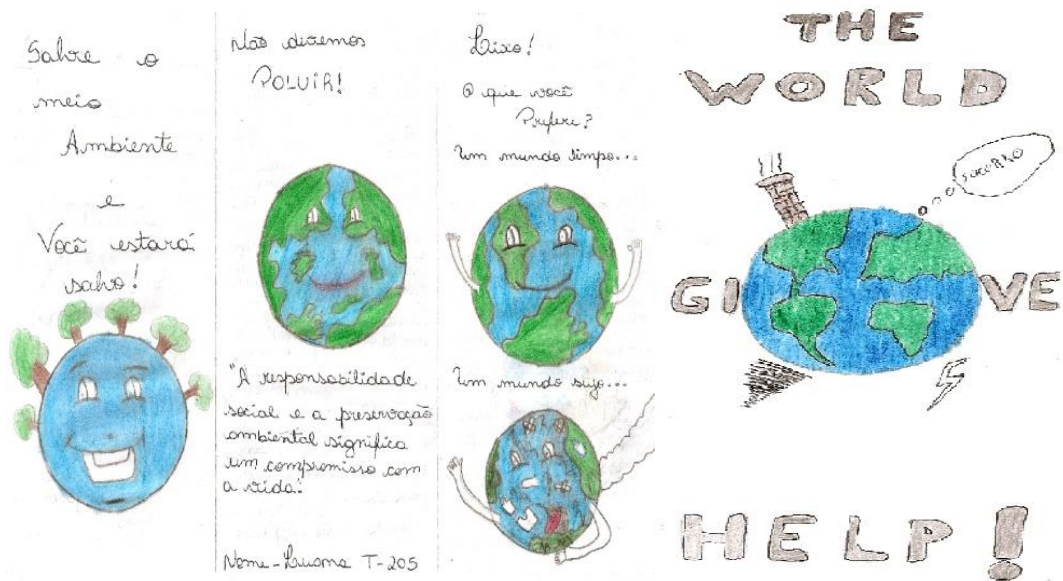 Salve o
meio
Ambiente
e
Você estará
salvo!
Não devemos
POLUIR!
"A responsabilidade
social e a preservação
ambiental significa
um compromisso com
a vida."
Nome - Luana T-205
Lixo!
O que você
Prefere?
Um mundo limpo...
Um mundo sujo...
THE
WORLD
SOCORRO
GI VE
HELP!